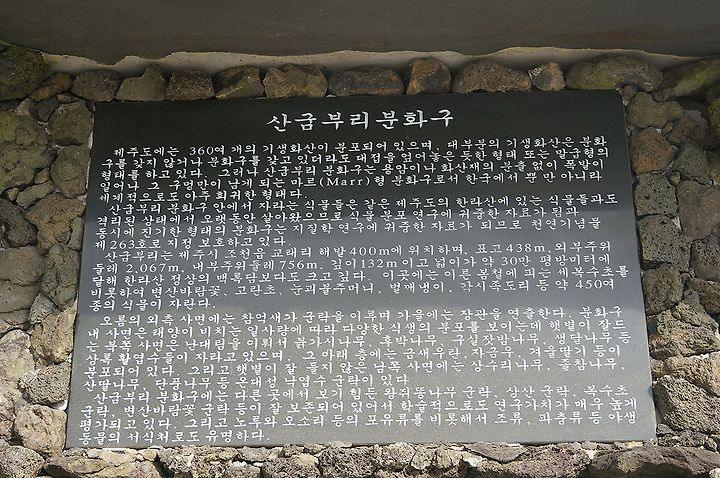 산굼부리분화구
제주도에는 360여 개의 기생화산이 분포되어 있으며, 대부분의 기생화산은 분화
구를 갖지 않거나 분화구를 갖고 있더라도 대접을 엎어놓은 듯한 형태 또는 말굽형의
형태를 하고 있다. 그러나 산굼부리 분화구는 용암이나 화산재의 분출없이 폭발이
일어나 그 구멍만이 남게 되는 마르(Marr)형 분화구로서 한국에서 뿐 만 아니라
세계적으로도 아주 희귀한 형태다.
산굼부리 분화구 안에서 자라는 식물들은 같은 제주도의 한라산에 있는 식물들과도
격리된 상태에서 오랫동안 살아왔으므로 식물 분포 연구에 귀중한 자료가 됨과
동시에 진기한 형태의 분화구는 지질학 연구에 귀중한 자료가 되므로 천연기념물
제263호로 지정 보호하고 있다.
산굼부리는 제주시 조천읍 교래리 해발 400m에 위치하며, 표고 438m, 외부주위
둘레 2,067m, 내부주위둘레 756m, 깊이 132m이고 넓이가 약 30만 평방미터에
달해 한라산 정상의 백록담보다도 크고 깊다. 이곳에는 이른 봄철에 피는 세복수초를
비롯하여 변산바람꽃, 고란초, 눈괴불주머니, 벌깨냉이, 각시족도리 등 약 450여
종의 식물이 자란다.
오름의 외측 사면에는 참억새가 군락을 이루며 가을에는 장관을 연출한다. 분화구
내 사면은 태양이 비치는 일사량에 따라 다양한 식생의 분포를 보이는데 햇볕이 잘드
는 북쪽 사면은 난대림을 이뤄서 붉가시나무, 후박나무, 구실잣밤나무, 생달나무 등
상록 활엽수들이 자라고 있으며, 그 아래 층에는 금새우란, 자금우, 겨울딸기 등이
분포되어 있다. 그리고 햇볕이 잘 들지 않은 남쪽 사면에는 상수리나무, 졸참나무,
산딸나무, 단풍나무 등 온대성 낙엽수 군락이 있다.
산굼부리 분화구에는 다른 곳에서 보기 힘든 왕쥐똥나무 군락, 상산 군락, 복수초
군락, 변산바람꽃 군락 등이 잘 보존되어 있어서 학술적으로도 연구가치가 매우 높게
평가되고 있다. 그리고 노루와 오소리 등의 포유류를 비롯해서 조류, 파충류 등 야생
동물의 서식처로도 유명하다.